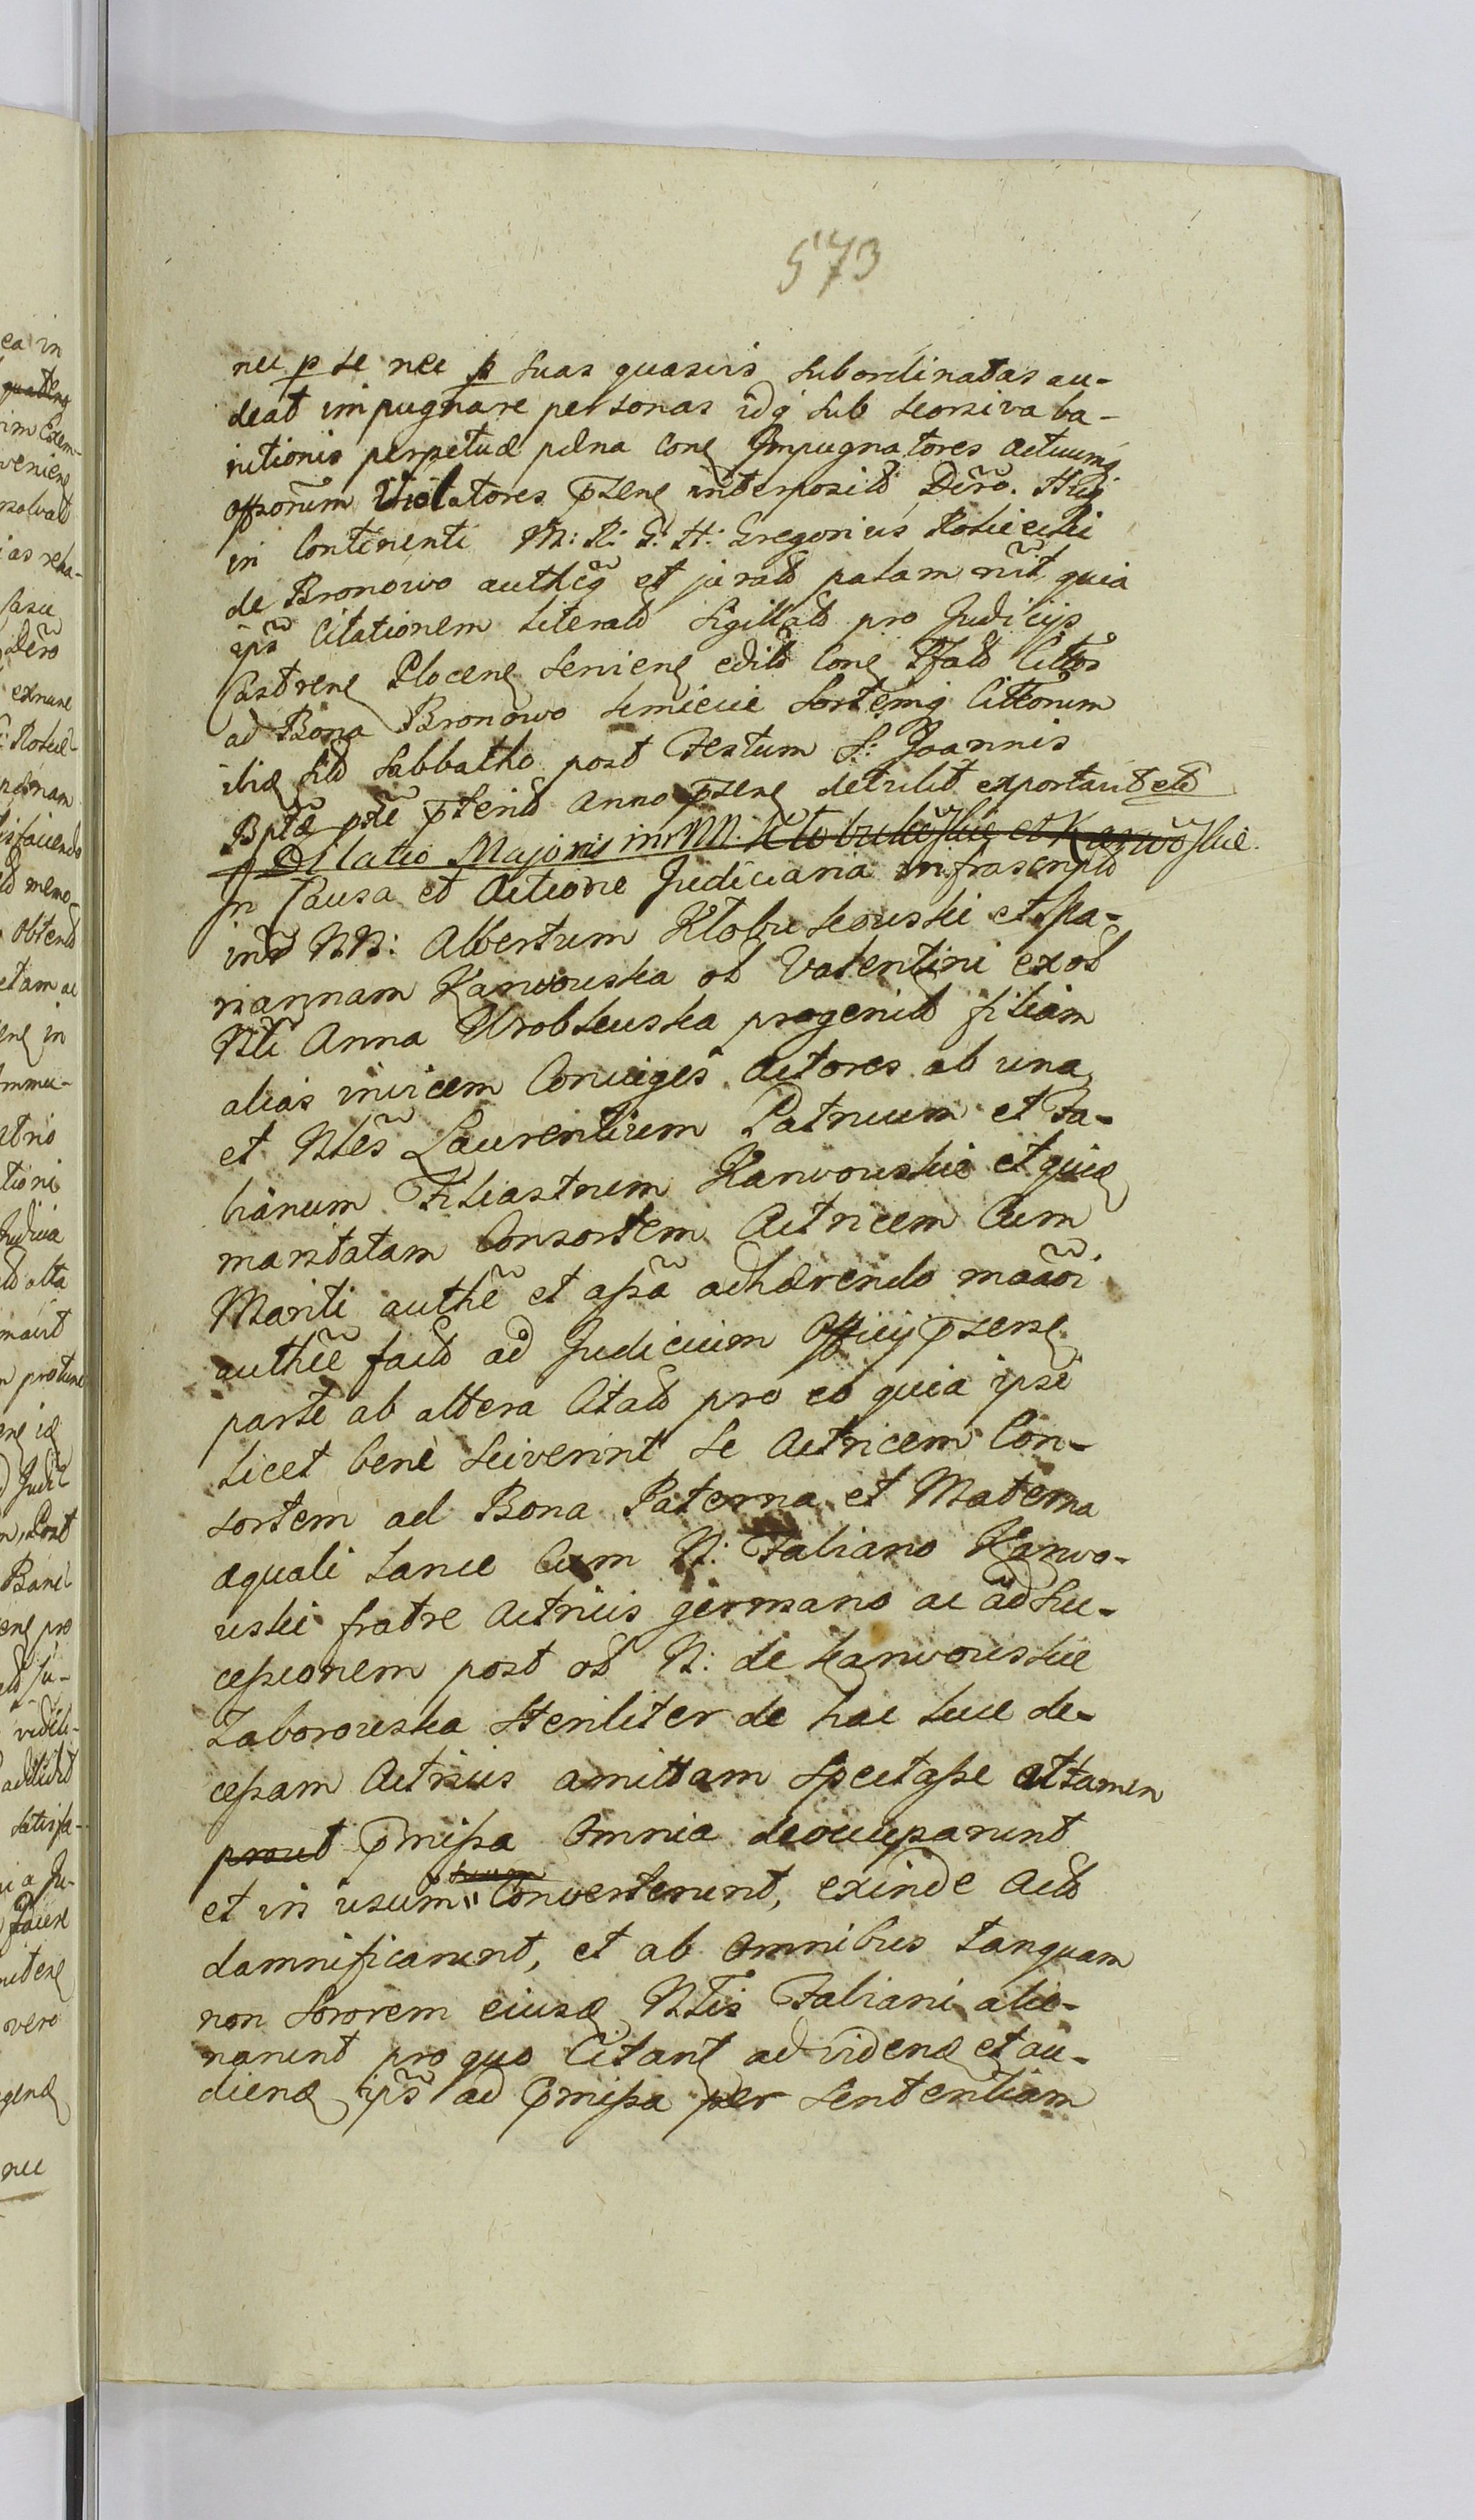 573
nec p se nec p suas quasvis subordinatas au-
deat impugnare personas idq sub seorsiva ba-
nitionis perpetuæ pæna Cone Impugnatores actuumq
offsorum Violatores pzene interposit Decro. Huj
in Continenti M: R: G: H: Gregorius Rosciecki
de Bronowo authcq et jurat palam rcit quia
ips Citationem Literat Sigillat pro Judicijs
Castrene Plocene Serviene edit Cone Pfat Cittos
ad Bona Bronowo Smiecie Sortemq Cittorum
ibiq sit Sabbatho post Festum S: Joannis
Bptæ pte pterit Anno pzene detulit exportavit etc
Dilatio Majoris in NN. Klobukowskie et Karwowskie.
In Causa et Actione Judiciaria infrascript
intr NN: Albertum Klobukowski et Ma-
riannam Karwowska ol Valentini ex ol
Nli Anna Wroblewska progenit filiam
alias invicem Conviges Actores ab una
et Nles Laurentium Patruum et Fa-
bianum Filiastrum Karwowskie et quia
maritatam Consortem Actricem Cum
Mariti authe et assa adhærendo maaoi
authæ facit ad Judicium Officij pzense
parte ab altera Citat pro eo quia ipsi
licet bene Sciverint Se Actricem Con-
sortem ad Bona Paterna et Materna
æquali Lance Cum N: Fabiano Karwo-
wski fratre Actricis germano ac ad Suc-
cessionem post ol N: de Karwowskie
Zaborowska Steriliter de hac Luce de-
cessam Actricis amittam Spectasse attamen
prout pmissa Omnia deoccuparunt
et in usum suum Converterunt, exinde Act
damnificarunt, et ab Omnibus tanquam
non Sororem eiusd Nlis Fabiani alie-
narunt pro quo Citant ad vidend et au-
diend ips ad pmissa per Sententiam